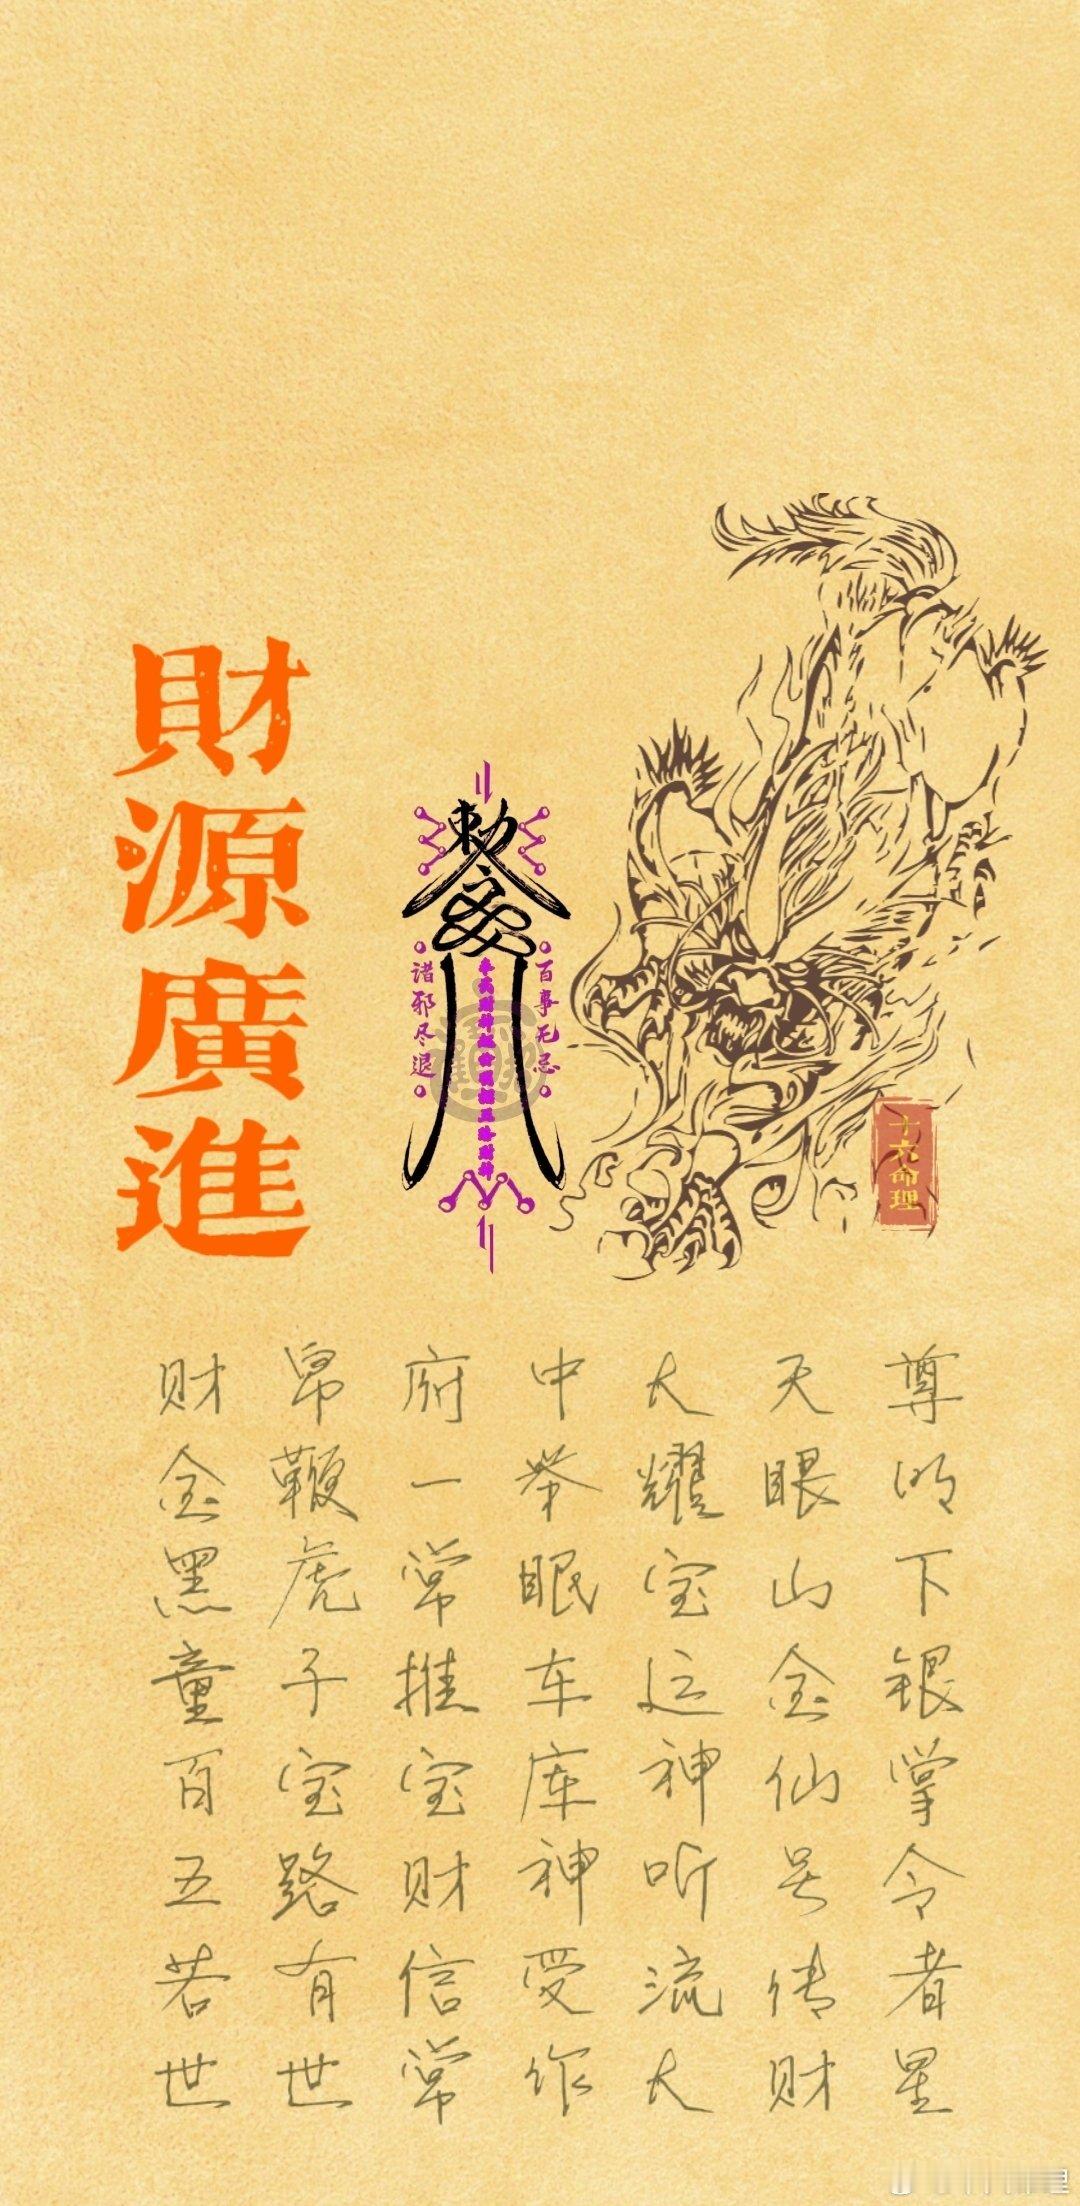 財源廣進
勅
諸邪尽退
百事无忌
十六命理
财帛府中大天尊
金鞭一举耀眼明
黑虎常眠宝山下
童子推车运金银
百宝宝库神仙掌
五路财神听号令
若有信受流传者
世世常作大财星